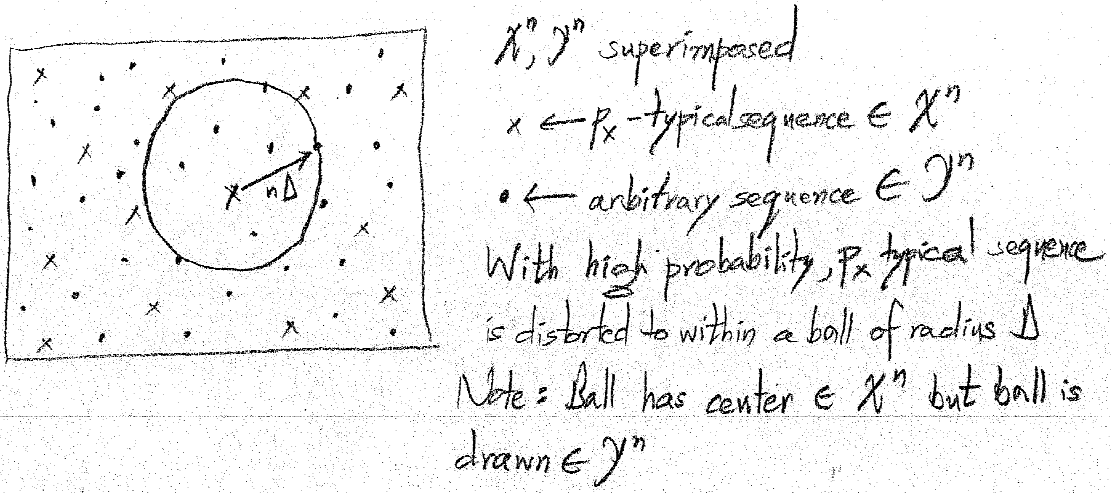 𝒳ⁿ, 𝒴ⁿ superimposed
x ← pₓ-typical sequence ∈ 𝒳ⁿ
• ← anbitrary sequence ∈ 𝒴ⁿ
nΔ
With high probability, pₓ typical sequence
is distorted to within a ball of radius Δ
Note: Ball has center ∈ 𝒳ⁿ but ball is
drawn ∈ 𝒴ⁿ